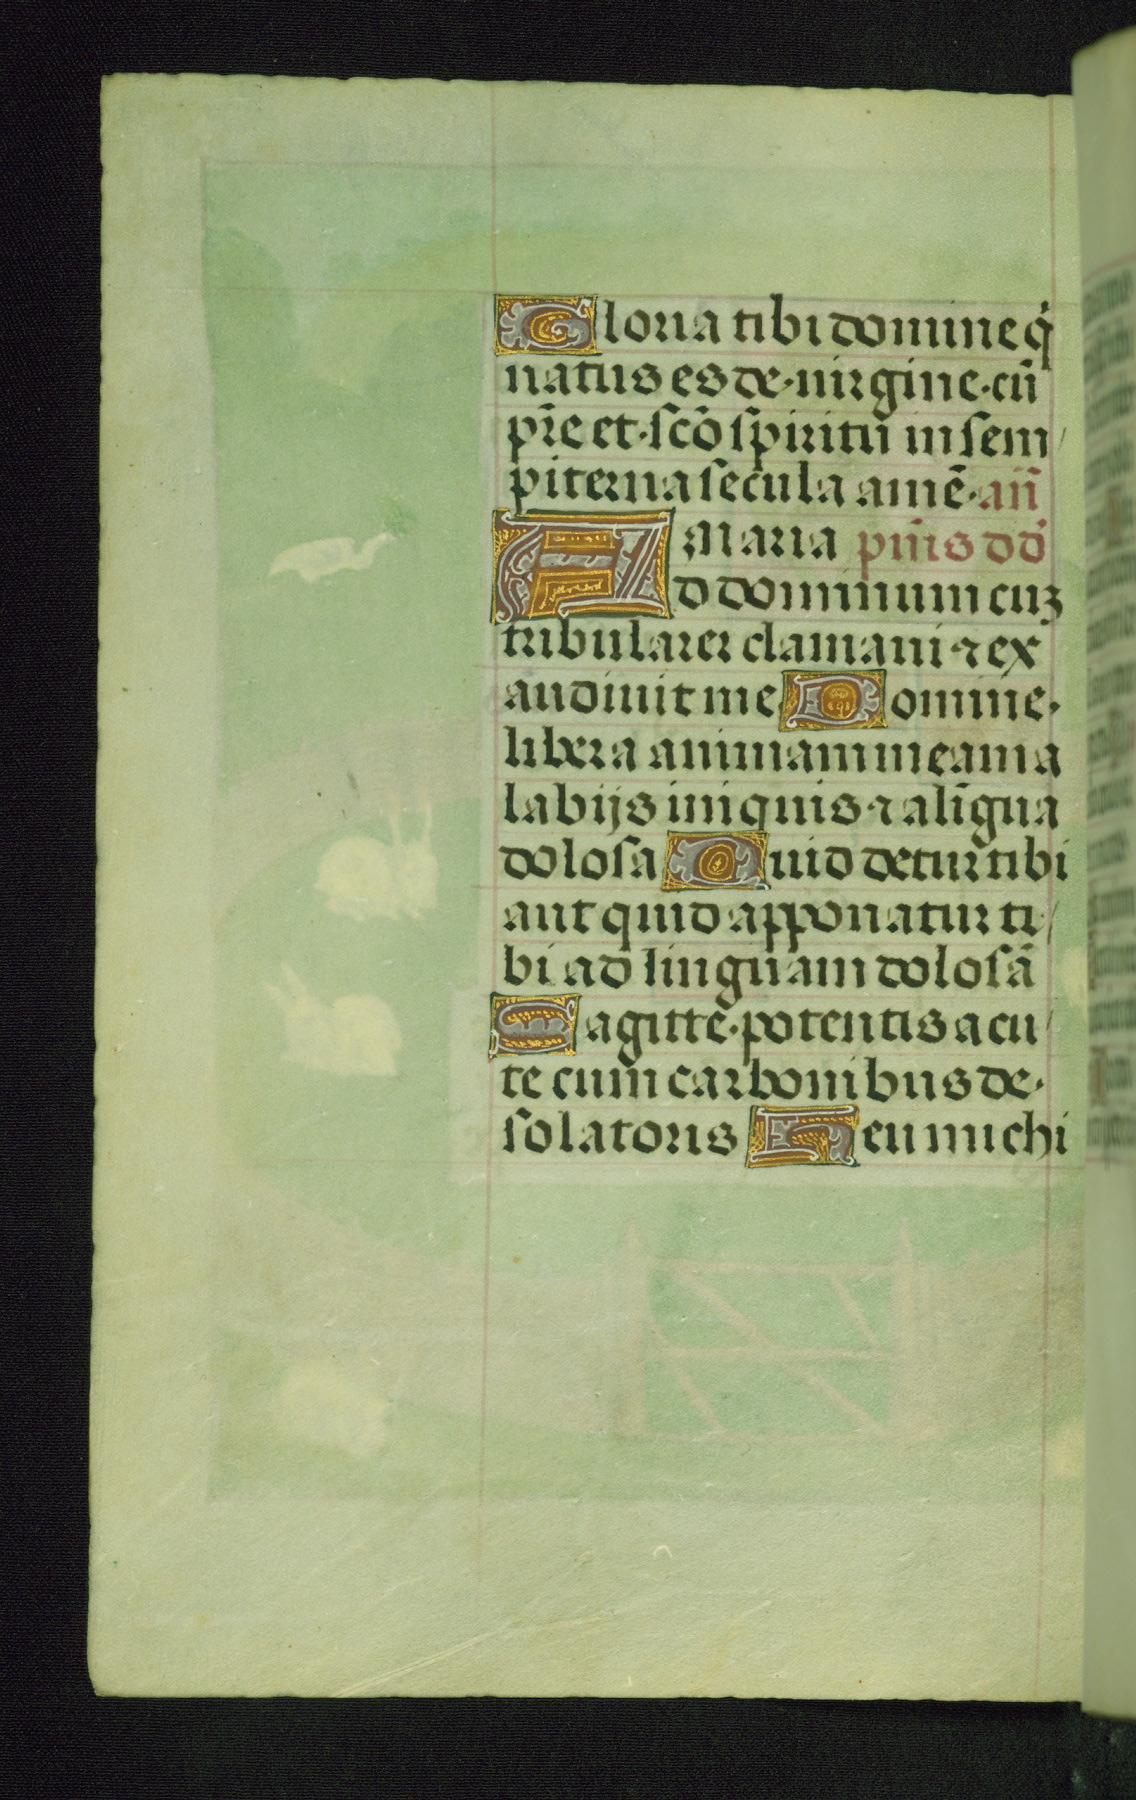 Gloria tibi domine q̇
natus es de virgine cū
pr̄e et sc̄o spiritū in sem
piterna secula amē an̄
Maria pm̄s dd̄
Ad dominum cuʒ
tribularer clamavi ⁊ ex
audivit me Domine
libera animam meam a
labijs iniquis ⁊ a lin̄gua
dolosa Quid detur̄ tibi
aut quid apponatur ti
bi ad linguam dolosā
Sagitte potentis acu
te cum carbonibus de
solatoris Heu michi